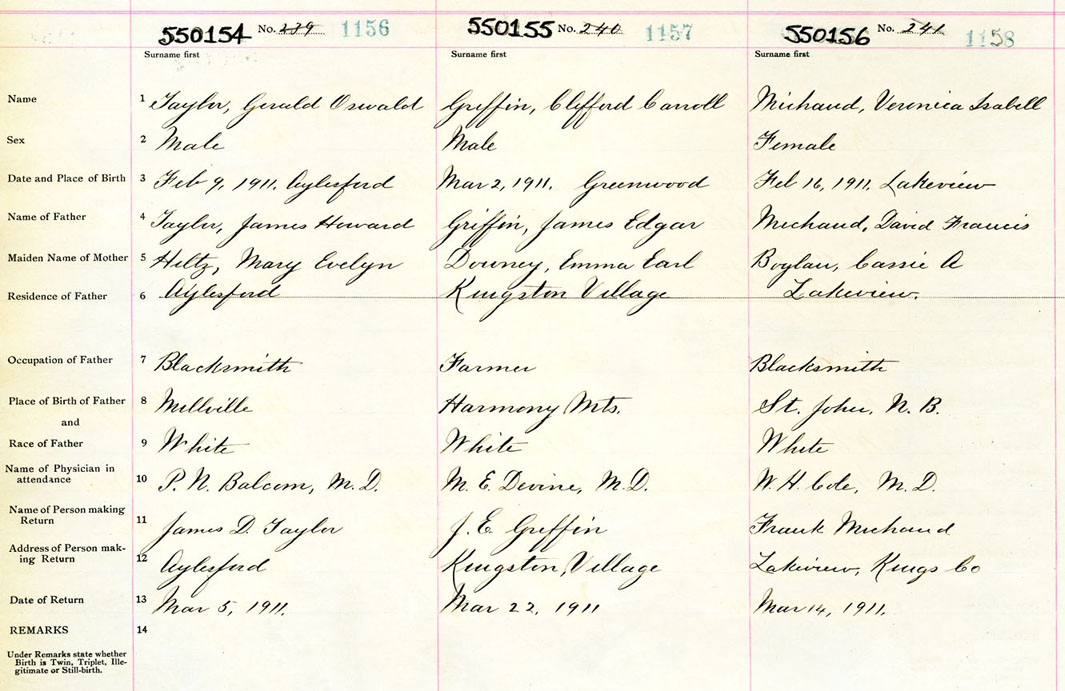 550154 No. 239 1156 550155 No. 240 1157 550156 No. 241 1158
Surname first Surname first Surname first
Name 1 Taylor, Gerald Oswald Griffin, Clifford Carroll Michaud, Veronica Isabell
Sex 2 Male Male Female
Date and Place of Birth 3 Feb 9, 1911. Aylesford Mar 2, 1911. Greenwood Feb 16, 1911, Lakeview
Name of Father 4 Taylor, James Howard Griffin, James Edgar Michaud, David Francis
Maiden Name of Mother 5 Hiltz, Mary Evelyn Downey, Emma Earl Boylan, Cassie A
Residence of Father 6 Aylesford Kingston Village Lakeview.
Occupation of Father 7 Blacksmith Farmer Blacksmith
Place of Birth of Father 8 Millville Harmony Mts. St. John, N. B.
and
Race of Father 9 White White White
Name of Physician in
attendance 10 P. N. Balcom, M. D. M. E. Devine, M. D. W. H. Cole, M. D.
Name of Person making
Return 11 James D. Taylor J. E. Griffin Frank Michaud
Address of Person mak-
ing Return 12 Aylesford Kingston, Village Lakeview, Kings Co
Date of Return 13 Mar 5, 1911. Mar 22, 1911 Mar 14, 1911.
REMARKS 14
Under Remarks state whether
Birth is Twin, Triplet, Ille-
gitimate or Still-birth.